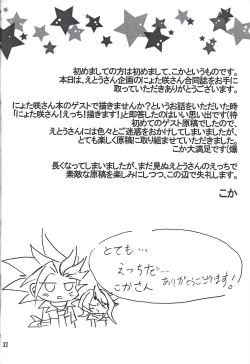 初めましての方は初めまして、こかというものです。
本日は、えとうさん企画のにょた咲さん合同誌をお手に
取っていただきありがとうございます。
「にょた咲さん本のゲストで描きませんか?というお話をいただいた時
「にょた咲さん!えっち!描きます!」と即答したのはいい思い出です(待
初めてのゲスト原稿でしたので、
えとうさんには色々とご迷惑をおかけしてしまいましたが、
とても楽しく原稿に取り組ませていただきました。
こか大満足です(爆
長くなってしまいましたが、まだ見ぬえとうさんのえっちで
素敵な原稿を楽しみにしつつ、この辺で失礼します。
こか
とても…
えっちだ…
こかさん
ありがとうございます!
32